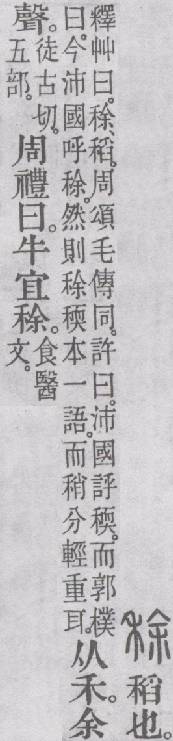 稌 稻也。
釋艸曰。稌、稻。周頌毛傳同。許曰。沛國評稬。而郭樸
曰。今沛國呼稌。然則稌稬本一語。而稍分輕重耳。
从禾。余
聲。
徒古切。
五部。
周禮曰。牛宜稌。
食醫
文。